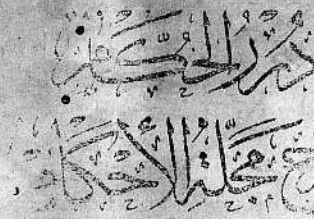 درر الحكام
مجلة الأحكام